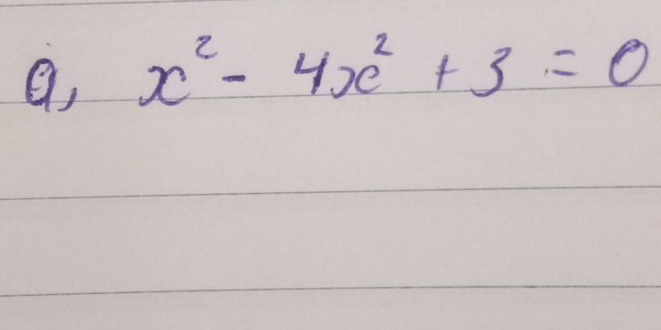 a, x² - 4x² + 3 = 0